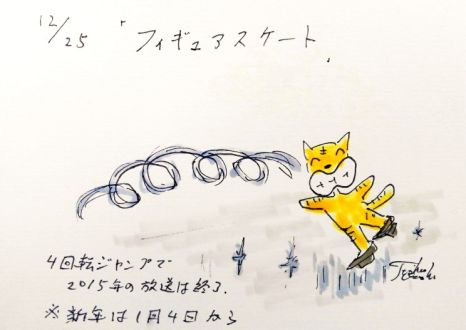 12/25 「フィギュアスケート」
4回転ジャンプで
2015年の放送は終了.
※新年は1月4日から